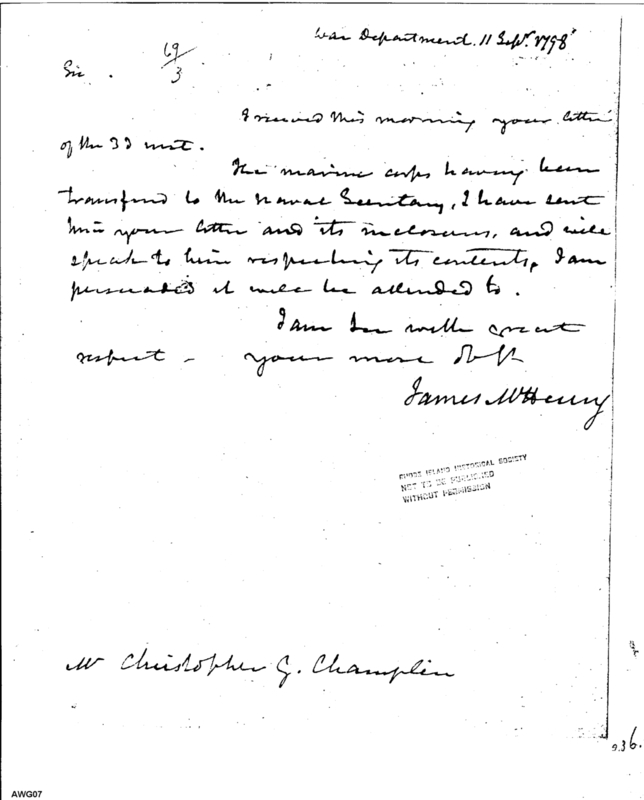 War Department. 11 Sepr. 1798
69/3
Sir.
I received this morning your letter
of the 3d inst.
The marine corps having been
transferd to the Naval Secretary, I have sent
him your letter and its inclosures, and will
speak to him respecting its contents, I am
persuaded it will be attended to.
I am Sir with great
respect - your most obt
James McHenry
RHODE ISLAND HISTORICAL SOCIETY
NOT TO BE PUBLISHED
WITHOUT PERMISSION
Mr Christopher G. Champlin
936.
AWG07